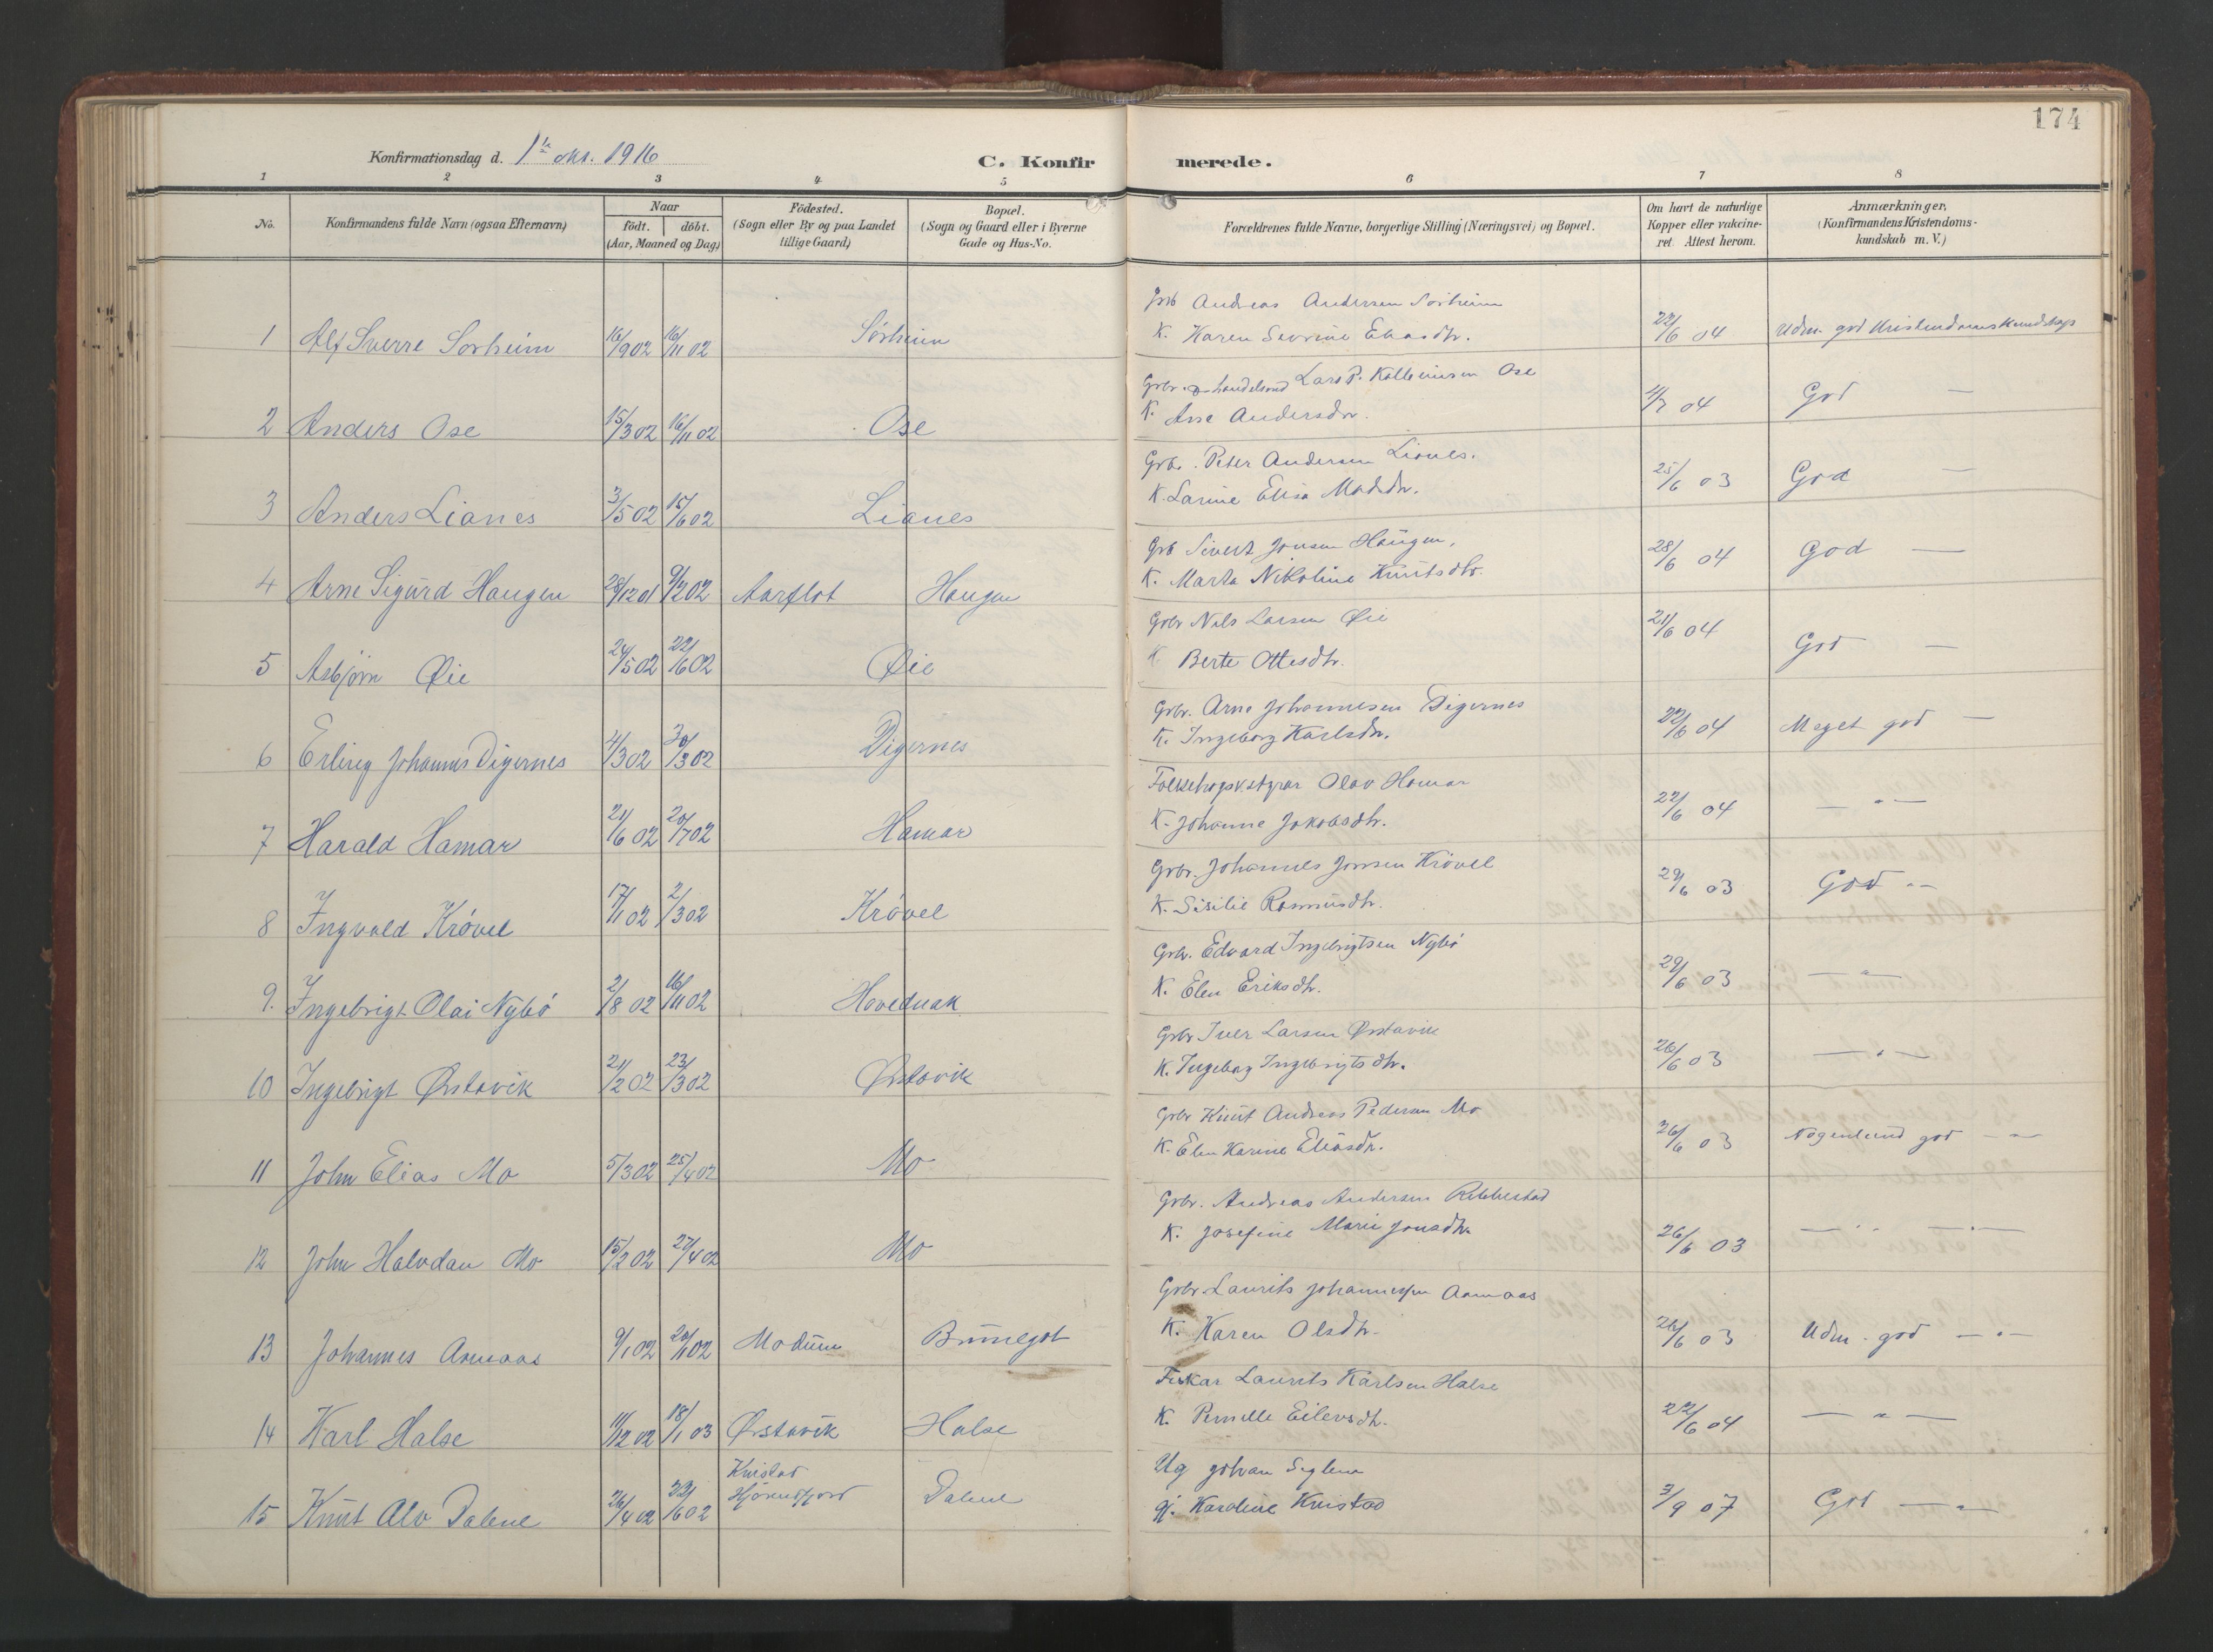 174
Konfirmationsdag d. 1ste okt. 1916
C. Konfirmerede.
1 2 3 4 5 6 7 8
No. Konfirmandens fulde Navn (ogsaa Efternavn) Naar födt. döbt. (Aar, Maaned og Dag) Födested. (Sogn eller By og paa Landet tillige Gaard) Bopæl. (Sogn og Gaard eller i Byerne Gade og Hus-No. Forældrenes fulde Navne, borgerlige Stilling (Næringsvei) og Bopæl. Om havt de naturlige Kopper eller vakcineret. Attest herom. Anmærkninger. (Konfirmandens Kristendomskundskab m. V.)
1 Alf Sverre Sorheim 16/9 02 16/11 02 Sörheim
Grb Andreas Andersen Sorheim
K. Karen Severine Eliasdtr. 22/6 04 Udm. god Kristendomskundskap
2 Anders Ose 15/3 02 16/11 02 Ose
Grbr. & handelsmd Lars P. Kolbeinsen Ose
K. Ane Andersdtr. 4/7 04 God —
3 Anders Lianes 3/5 02 15/6 02 Lianes
Grbr. Peter Andersen Lianes.
K. Larine Elisa Madsdtr. 25/6 03 God —
4 Arne Sigurd Haugen 28/12 01 9/2 02 Aarflot Haugen
Grb Sivert Jonsen Haugen,
K. Marta Nikoline Knutsdtr. 28/6 04 God —
5 Asbjörn Øie 24/5 02 22/6 02 Øie
Grbr Nils Larsen Øie
K Berte Ottesdtr. 21/6 04 God —
6 Erling Johannes Digernes 4/3 02 30/3 02 Digernes
Grbr. Arne Johannesen Digernes
K. Ingeborg Karlsdtr. 22/6 04 Meget god —
7 Harald Hamar 21/6 02 20/7 02 Hamar
Folkehøgsk.styrar Olav Hamar
K. Johanne Jakobsdtr. 22/6 04 — " —
8 Ingvald Krövel 17/1 02 2/3 02 Krövel
Grbr. Johannes Jonsen Krövel
K. Sisilie Rasmusdtr. 29/6 03 God "—
9. Ingebrigt Olai Nybö 2/8 02 16/11 02 Hovednak
Grbr. Edvard Ingebrigtsen Nybö
K. Elen Eriksdtr. 29/6 03 — " —
10 Ingebrigt Ørstavik 21/2 02 23/3 02 Ørstavik
Grbr Iver Larsen Ørstavik
K. Ingeborg Ingebrigtsdtr. 26/6 03 — " —
11 John Elias Mo 5/3 02 25/4 02 Mo
Grbr Knut Andreas Pedersen Mo
K. Elen Karine Eliasdtr. 26/6 03 Nogenlund god — " —
12 John Halvdan Mo 15/2 02 27/4 02 Mo
Grbr. Andreas Andersen Rebbestad
K. Josefine Marie Jonsdtr. 26/6 03 — " — — " —
13 Johannes Aamaas 9/1 02 20/11 02 Modum Brunegot
Grbr. Laurits Johannessen Aamaas
K. Karen Olsdtr. 26/6 03 Udm. god — " —
14 Karl Halse 11/12 02 18/1 03 Ørstavik Halse
Fiskar Laurits Karlsen Halse
K. Pernille Eilevsdtr. 22/6 04 — " —
15 Knut Alv Dalene 26/4 02 22/6 02 Kvistad Hjörundfjord Dalene
Ug Johan Seglem
Pj. Karoline Kvistad 3/9 07 God — " —